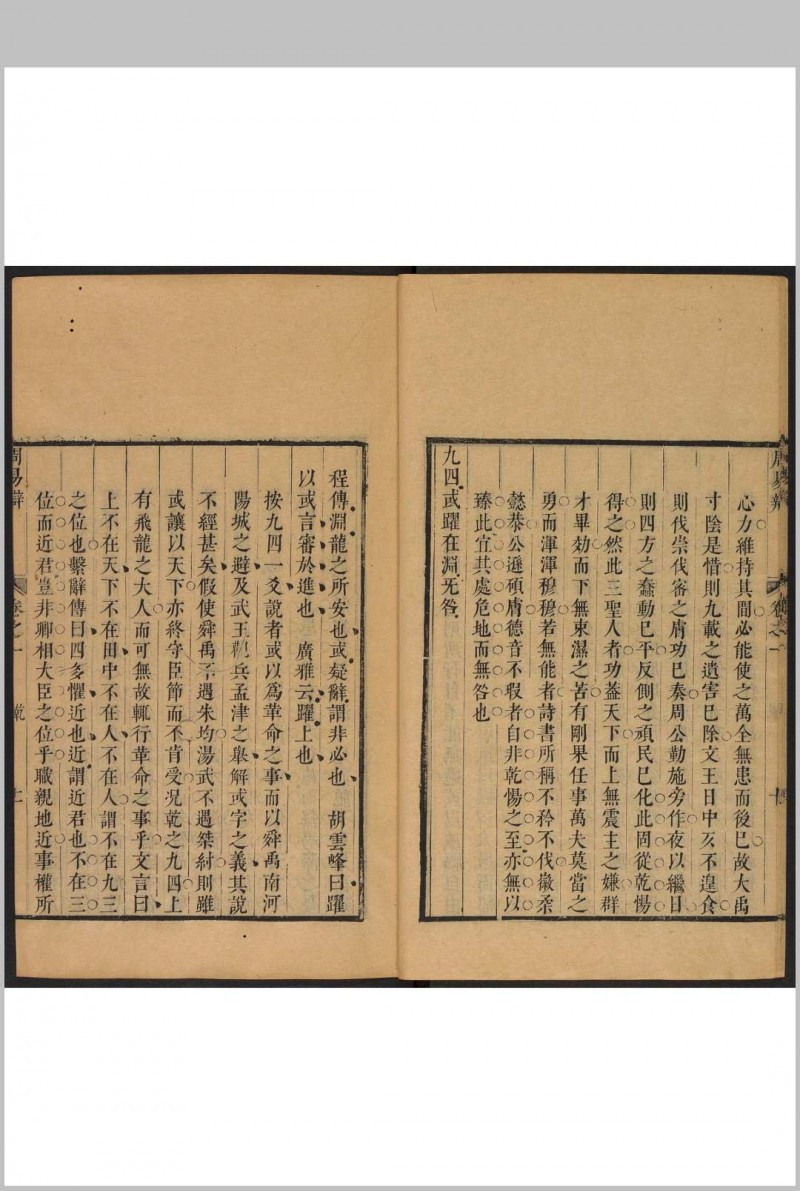 心力維持其間必能使之萬全無患而後已故大禹
寸陰是惜則九載之遺害已除文王日中亥不遑食
則伐崇伐審之膚功已奏周公勤施旁作夜以繼日
則四方之蠢動已平反側之頑民已化此固從乾惕
得之然此三聖人者功蓋天下而上無震主之嫌群
才畢効而下無束濕之苦有剛果任事萬夫莫當之
勇而渾渾穆穆若無能者詩書所稱不矜不伐徽柔
懿恭公遜碩膚德音不瑕者自非乾惕之至亦無以
臻此宜其處危地而無咎也
九四或躍在淵无咎
程傳淵龍之所安也或疑辭謂非必也 胡雲峰曰躍
以或言審於進也 廣雅云躍上也
按九四一爻說者或以爲革命之事而以舜禹南河
陽城之避及武王觀兵孟津之舉解或字之義其說
不經甚矣假使舜禹不遇朱均湯武不遇桀紂則雖
或讓以天下亦終守臣節而不肯受况乾之九四上
有飛龍之大人而可無故輒行革命之事乎文言曰
上不在天下不在田中不在人不在人謂不在九三
之位也繫辭傳曰四多懼近也近謂近君也不在三
位而近君豈非卿相大臣之位乎職親地近事權所
周易辨
卷之一
乾
上